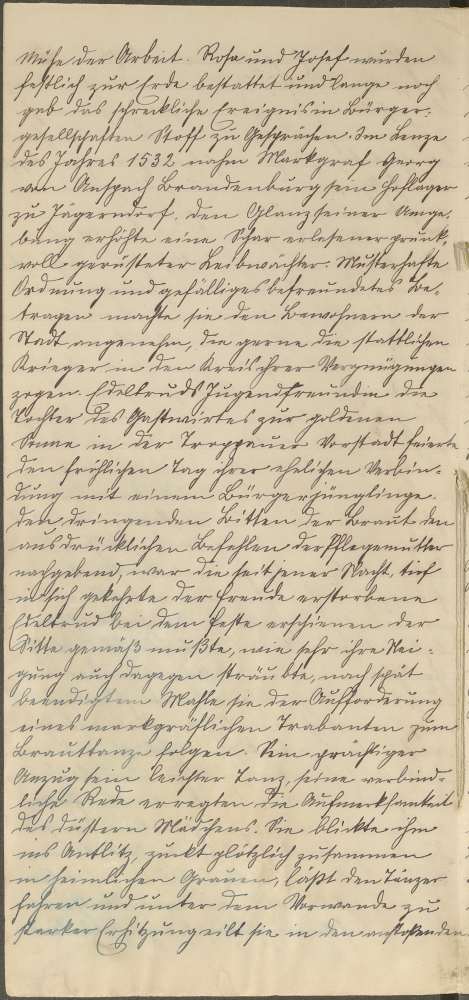 Mühe der Arbeit. Rosa und Josef wurden
festlich zur Erde bestattet und lange noch
gab das schreckliche Ereignis in Bürger-
gesellschaften Stoff zu Gesprächen. Im Lenze
des Jahres 1532 nahm Markgraf Georg
von Anspach Brandenburg sein Hoflager
zu Jägerndorf. Den Glanz seiner Umge-
bung erhöhte eine Schar erlesener prunk-
voll gerüsteter Leibwächter. Musterhafte
Ordnung und gefälliges befreundetes Be-
tragen machte sie den Bewohnern der
Stadt angenehm, die gerne die stattlichen
Krieger in den Kreis ihrer Vergnügungen
zogen. Edeltruds Jugendfreundin die
Tochter des Gastwirtes zur goldenen
Sonne in der Troppauer Vorstadt feierte
den fröhlichen Tag ihrer ehelichen Verbin-
dung mit einem Bürgerjünglinge.
Den dringenden Bitten der Braut den
ausdrücklichen Befehlen der Pflegemutter
nachgebend, war die seit jener Nacht, tief
in sich gekehrte der Freude erstorbene
Edeltrud bei dem Feste erschienen der
Sitte gemäß mußte, wie sehr ihre Nei-
gung auch dagegen sträubte, nach spät
beendigtem Mahle sie der Aufforderung
eines markgräflichen Trabanten zum
Brauttanze folgen. Sein prächtiger
Anzug sein leichter Tanz, seine verbind-
liche Rede erregten die Aufmerksamkeit
des düstern Mädchens. Sie blickte ihm
ins Antlitz, zuckt plötzlich zusammen
in heimlichen Grauen, läßt den Tänzer
fahren und unter dem Vorwande zu
starker Erhitzung eilt sie in den anstoßenden